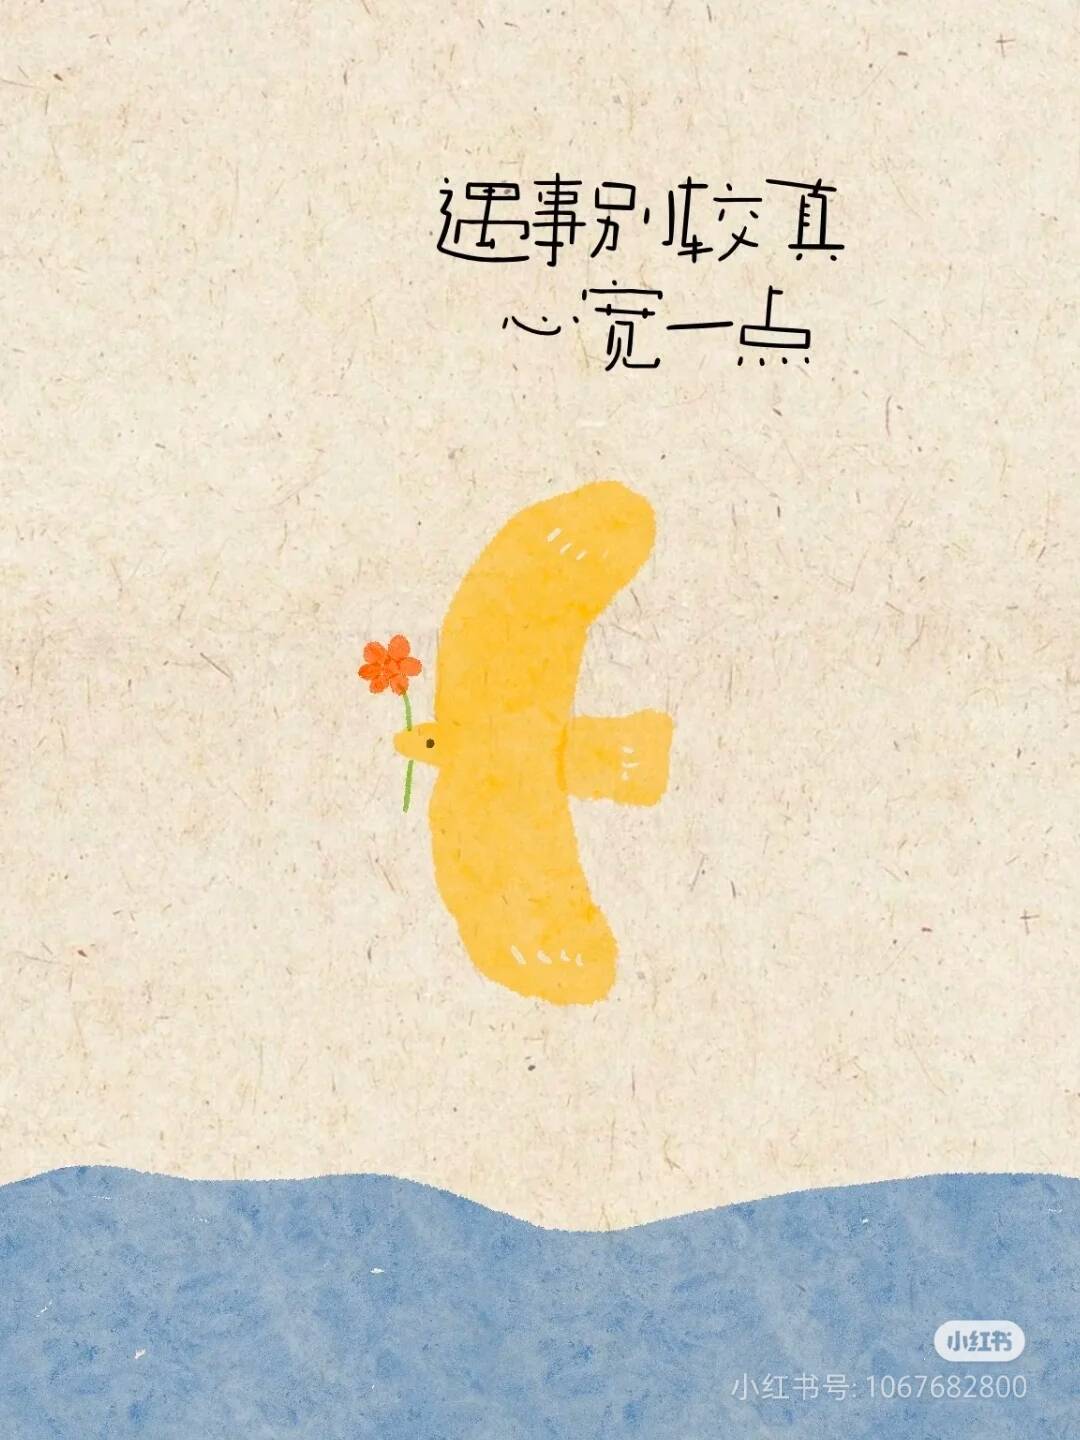 遇事别较真
心宽一点
小红书
小红书号: 1067682800